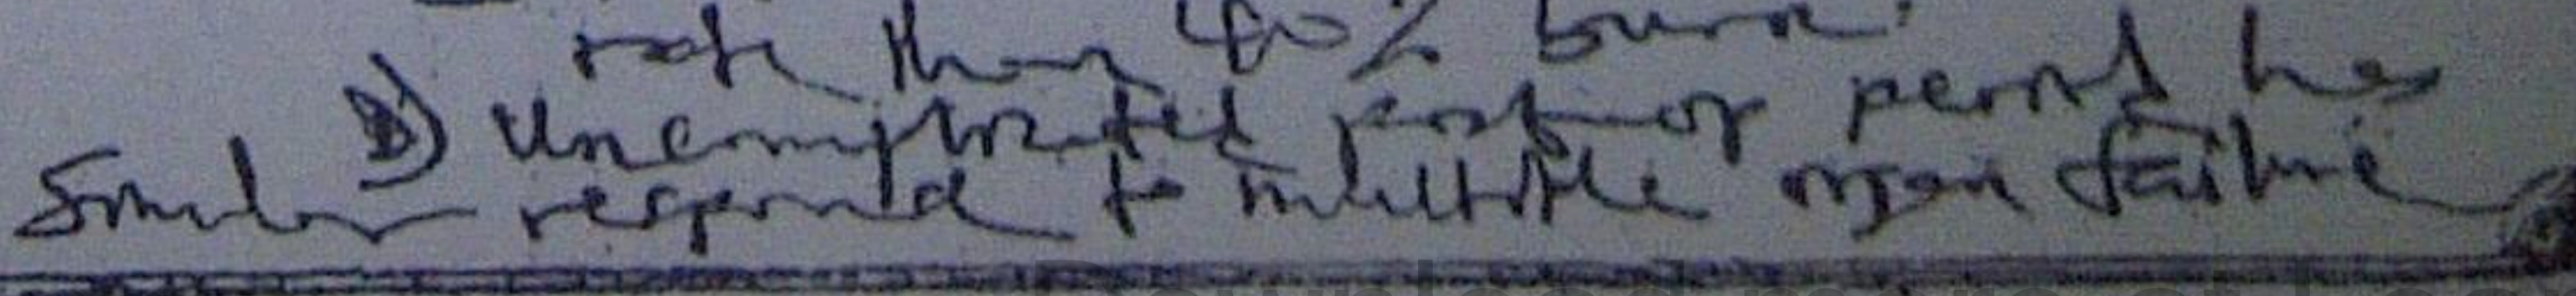 rate than 40% burn.
B) Uncomplicated postop period has
Similar respond to multiple organ failure